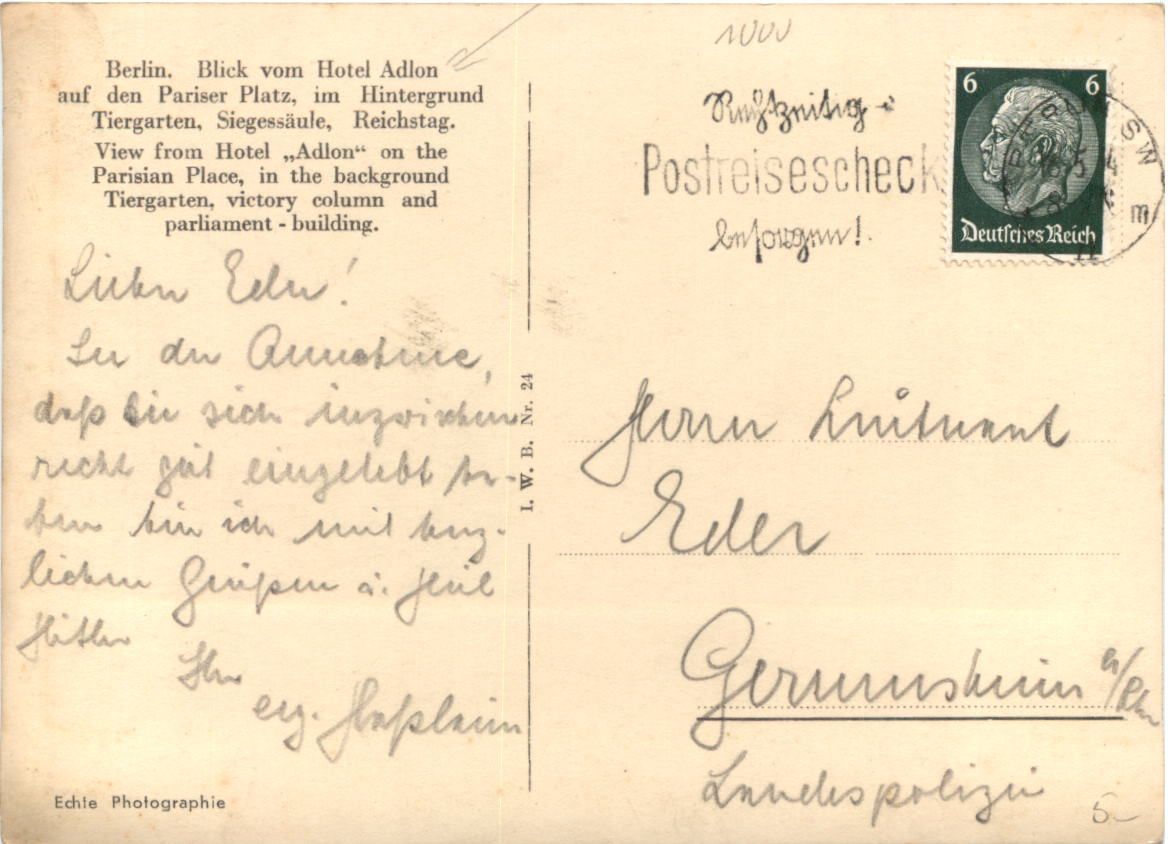 Berlin. Blick vom Hotel Adlon
auf den Pariser Platz, im Hintergrund
Tiergarten, Siegessäule, Reichstag.
View from Hotel „Adlon“ on the
Parisian Place, in the background
Tiergarten, victory column and
parliament - building.
Lieber Eder!
In der Annahme,
daß Sie sich inzwischen
recht gut eingelebt ha-
ben bin ich mit herz-
lichen Grüßen u. Heil
Hitler
Ihr
erg.
Echte Photographie
I. W. B. Nr. 24
1000
Rechtzeitig
Postreisescheck
besorgen!
6 6
Deutsches Reich
SW
m
Herrn Leutnant
Eder
Germersheim a/Rh
Landespolizei
5-